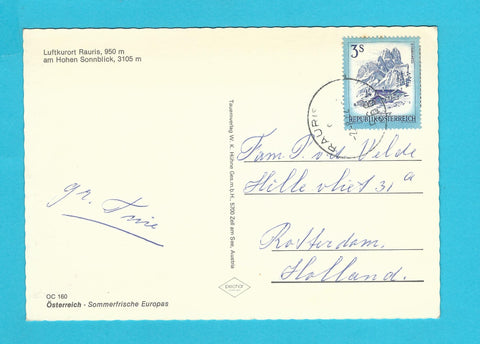 Luftkurort Rauris, 950 m
am Hohen Sonnblick, 3105 m
3S
REPUBLIK ÖSTERREICH
RAURIS
Tauernverlag W. K. Hühne Ges.m.b.H., 5700 Zell am See, Austria
Fam. P. v.d. Velde
Hillevliet 31a
Rotterdam.
Holland.
gr.
OC 160
Österreich - Sommerfrische Europas